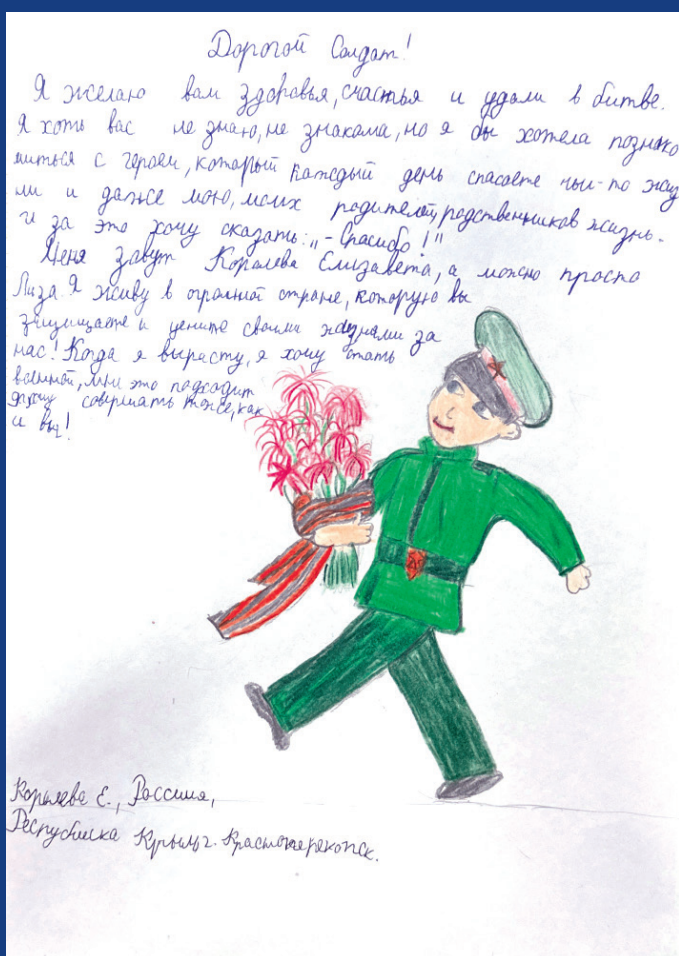 Дорогой Солдат!
Я желаю вам здоровья, счастья и удали в битве.
Я хоть вас не знаю, не знакома, но я бы хотела познако
миться с героем, который каждый день спасаете чьи-то жиз
ни и даже мою, моих родителей, родственников жизнь.
И за это хочу сказать: „-Спасибо!"
Меня зовут Королева Елизавета, а можно просто
Лиза. Я живу в огромной стране, которую вы
защищаете и цените своими жизнями за
нас! Когда я вырасту, я хочу стать
военной, мне это подходит
совершать тоже, как
и вы!
Королева Е., Россия,
Республика Крым, г. Красноперекопск.